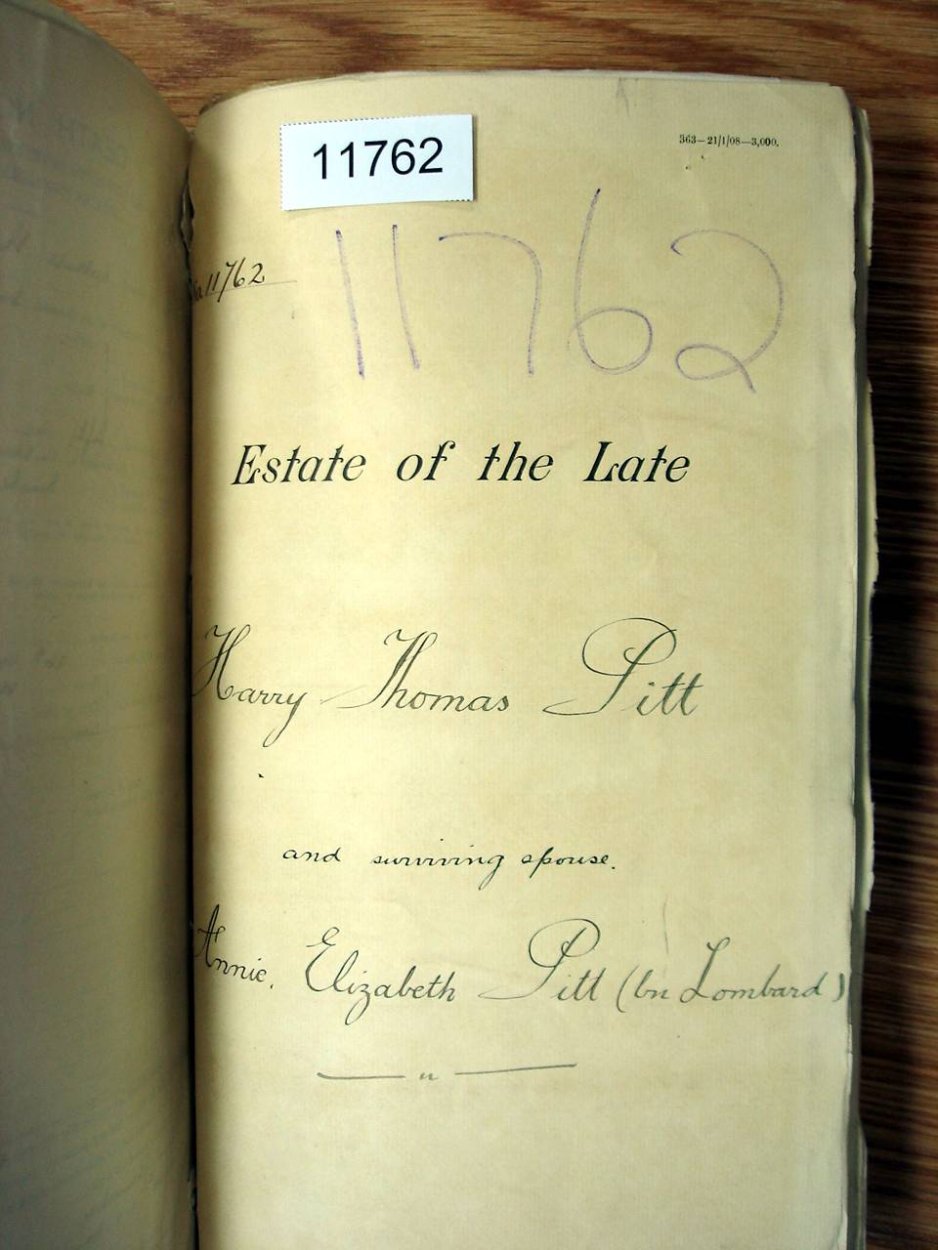 11762
363—21/1/08—3,000.
11762
11762
Estate of the Late
Harry Thomas Pitt
and surviving spouse.
Annie, Elizabeth Pitt (bn Lombard)